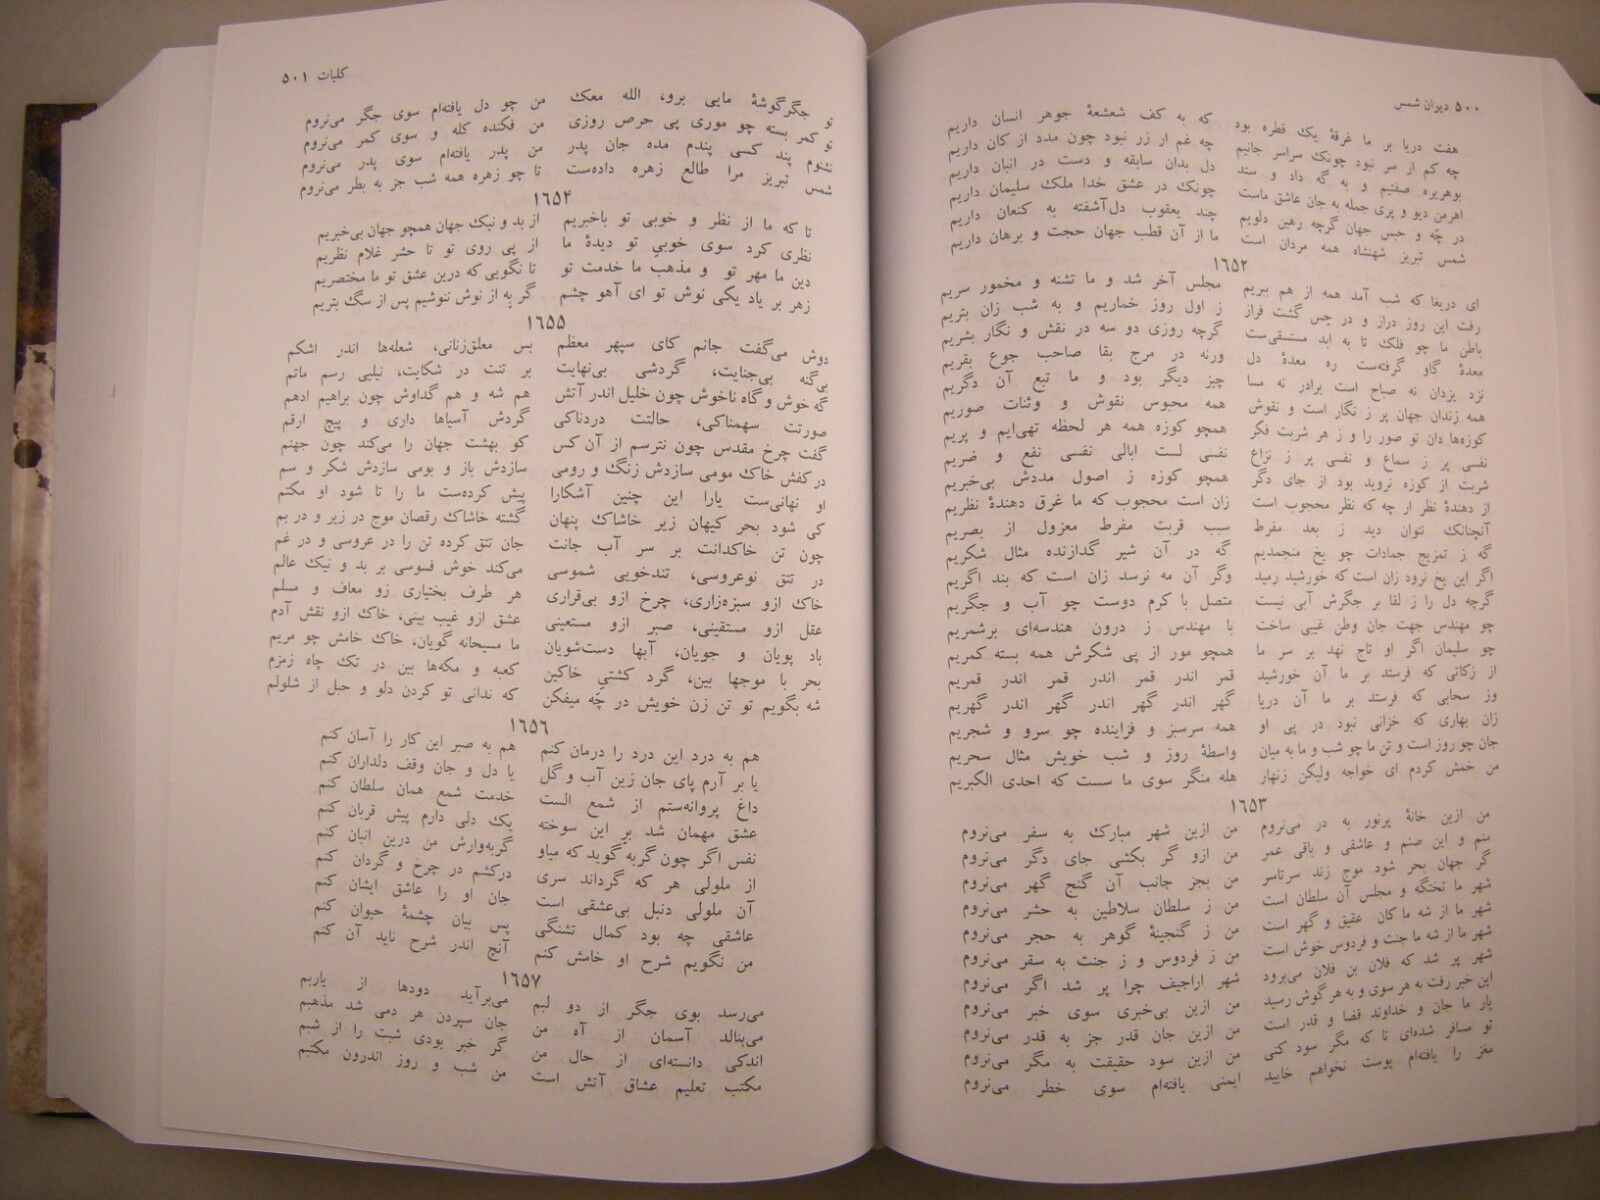 ۵۰۰ دیوان شمس
هفت دریا بر ما غرقهٔ یک قطره بود که به کف شعشعهٔ جوهر انسان داریم
چه کم از سر نبود چونک سراسر جانیم چه غم از زر نبود چون مدد از کان داریم
بوهریره صفتیم و به گه داد و ستد دل بدان سابقه و دست در انبان داریم
اهرمن دیو و پری جمله به جان عاشق ماست چونک در عشق خدا ملک سلیمان داریم
در چه و حبس جهان گرچه رهین دلویم چند یعقوب دل‌آشفته به کنعان داریم
شمس تبریز شهنشاه همه مردان است ما از آن قطب جهان حجت و برهان داریم
۱۶۵۲
ای دریغا که شب آمد همه از هم ببریم مجلس آخر شد و ما تشنه و مخمور سریم
رفت این روز دراز و در حس گشت فراز ز اول روز خماریم و به شب زان بتریم
باطن ما چو فلک تا به ابد مستسقی‌ست گرچه روزی دو سه در نقش و نگار بشریم
معدهٔ گاو گرفته‌ست ره معدهٔ دل ورنه در مرج بقا صاحب جوع بقریم
نزد یزدان نه صباح است برادر نه مسا چیز دیگر بود و ما تبع آن دگریم
همه زندان جهان پر ز نگار است و نقوش همه محبوس نقوش و وثنات صوریم
کوزه‌ها دان تو صور را و ز هر شربت فکر همچو کوزه همه هر لحظه تهی‌ایم و پریم
نفسی پر ز سماع و نفسی پر ز نزاع نفسی لست ابالی نفسی نفع و ضریم
شربت از کوزه نروید بود از جای دگر همچو کوزه ز اصول مددش بی‌خبریم
از دهندهٔ نظر ار چه که نظر محجوب است زان است محجوب که ما غرق دهندهٔ نظریم
آنچنانک نتوان دید ز بعد مفرط سبب قربت مفرط معزول از بصریم
گه ز تمزیج جمادات چو یخ منجمدیم گه در آن شیر گدازنده مثال شکریم
اگر این یخ نرود زان است که خورشید رمید وگر آن مه نرسد زان است که بند اگریم
گرچه دل را ز لقا بر جگرش آبی نیست متصل با کرم دوست چو آب و جگریم
چو مهندس جهت جان وطن غیبی ساخت با مهندس ز درون هندسه‌ای برشمریم
چو سلیمان اگر او تاج نهد بر سر ما همچو مور از پی شکرش همه بسته کمریم
از زکاتی که فرستد بر ما آن خورشید قمر اندر قمر اندر قمر اندر قمریم
وز سحابی که فرستد بر ما آن دریا گهر اندر گهر اندر گهر اندر گهریم
زان بهاری که خزانی نبود در پی او همه سرسبز و فزاینده چو سرو و شجریم
جان چو روز است و تن ما چو شب و ما به میان واسطهٔ روز و شب خویش مثال سحریم
من خمش کردم ای خواجه ولیکن زنهار هله منگر سوی ما سست که احدی الکبریم
۱۶۵۳
من ازین خانهٔ پرنور به در می‌نروم من ازین شهر مبارک به سفر می‌نروم
منم و این صنم و عاشقی و باقی عمر من ازو گر بکشی جای دگر می‌نروم
گر جهان بحر شود موج زند سرتاسر من بجز جانب آن گنج گهر می‌نروم
شهر ما تختگه و مجلس آن سلطان است من ز سلطان سلاطین به حشر می‌نروم
شهر ما از شه ما کان عقیق و گهر است من ز گنجینهٔ گوهر به حجر می‌نروم
شهر ما از شه ما جنت و فردوس خوش است من ز فردوس و ز جنت به سقر می‌نروم
شهر پر شد که فلان بن فلان می‌برود شهر اراجیف چرا پر شد اگر می‌نروم
این خبر رفت به هر سوی و به هر گوش رسید من ازین بی‌خبری سوی خبر می‌نروم
یار ما جان و خداوند قضا و قدر است من ازین جان قدر جز به قدر می‌نروم
تو مسافر شده‌ای تا که مگر سود کنی من ازین سود حقیقت به مگر می‌نروم
مغز را یافته‌ام پوست نخواهم خایید ایمنی یافته‌ام سوی خطر می‌نروم
کلیات ۵۰۱
تو جگرگوشهٔ مایی برو، الله معک من چو دل یافته‌ام سوی جگر می‌نروم
تو کمر بسته چو موری پی حرص روزی من فکنده کله و سوی کمر می‌نروم
نشنوم پند کسی پندم مده جان پدر من پدر یافته‌ام سوی پدر می‌نروم
شمس تبریز مرا طالع زهره داده‌ست تا چو زهره همه شب جز به بطر می‌نروم
۱۶۵۴
تا که ما از نظر و خوبی تو باخبریم از بد و نیک جهان همچو جهان بی‌خبریم
نظری کرد سوی خوبی تو دیدهٔ ما از پی روی تو تا حشر غلام نظریم
دین ما مهر تو و مذهب ما خدمت تو تا نگویی که درین عشق تو ما مختصریم
زهر بر یاد یکی نوش تو ای آهو چشم گر به از نوش ننوشیم پس از سگ بتریم
۱۶۵۵
دوش می‌گفت جانم کای سپهر معظم بس معلق‌زنانی، شعله‌ها اندر اشکم
بی‌گنه بی‌جنایت، گردشی بی‌نهایت بر تنت در شکایت، نیلیی رسم ماتم
گه خوش و گاه ناخوش چون خلیل اندر آتش هم شه و هم گداوش چون براهیم ادهم
صورتت سهمناکی، حالتت دردناکی گردش آسیاها داری و پیچ ارقم
گفت چرخ مقدس چون نترسم از آن کس کو بهشت جهان را می‌کند چون جهنم
در کفش خاک مومی سازدش زنگ و رومی سازدش باز و بومی سازدش شکر و سم
او نهانی‌ست یارا این چنین آشکارا پیش کرده‌ست ما را تا شود او مکتم
کی شود بحر کیهان زیر خاشاک پنهان گشته خاشاک رقصان موج در زیر و در بم
چون تن خاکدانت بر سر آب جانت جان تتق کرده تن را در عروسی و در غم
در تتق نوعروسی، تندخویی شموسی می‌کند خوش فسوسی بر بد و نیک عالم
خاک ازو سبزه‌زاری، چرخ ازو بی‌قراری هر طرف بختیاری زو معاف و مسلم
عقل ازو مستقینی، صبر ازو مستعینی عشق ازو غیب بینی، خاک ازو نقش آدم
باد پویان و جویان، آبها دست‌شویان ما مسیحانه گویان، خاک خامش چو مریم
بحر با موجها بین، گرد کشتی خاکین کعبه و مکه‌ها بین در تک چاه زمزم
شه بگویم تو تن زن خویش در چه میفکن که ندانی تو کردن دلو و حبل از شلولم
۱۶۵۶
هم به درد این درد را درمان کنم هم به صبر این کار را آسان کنم
یا بر آرم پای جان زین آب و گل یا دل و جان وقف دلداران کنم
داغ پروانه‌ستم از شمع الست خدمت شمع همان سلطان کنم
عشق مهمان شد بر این سوخته یک دلی دارم پیش قربان کنم
نفس اگر چون گربه گوید که میاو گربه‌وارش من درین انبان کنم
از ملولی هر که گرداند سری درکشم در چرخ و گردان کنم
آن ملولی دنبل بی‌عشقی است جان او را عاشق ایشان کنم
عاشقی چه بود کمال تشنگی پس بیان چشمهٔ حیوان کنم
من نگویم شرح او خامش کنم آنچ اندر شرح ناید آن کنم
۱۶۵۷
می‌رسد بوی جگر از دو لبم می‌برآید دودها از یاربم
می‌بنالد آسمان از آه من جان سپردن هر دمی شد مذهبم
اندکی دانسته‌ای از حال من گر خبر بودی شبت را از شبم
مکتب تعلیم عشاق آتش است من شب و روز اندرون مکتبم